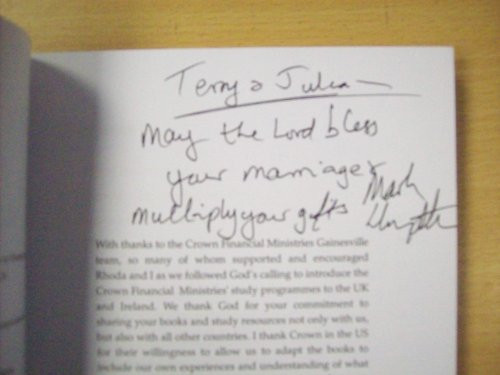 Terry & Julia —
May the Lord bless
your marriage &
multiply your gifts
Mark
With thanks to the Crown Financial Ministries Gainesville
team, so many of whom supported and encouraged
Rhoda and I as we followed God's calling to introduce the
Crown Financial Ministries' study programmes to the UK
and Ireland. We thank God for your commitment to
sharing your books and study resources not only with us,
but also with all other countries. I thank Crown in the US
for their willingness to allow us to adapt the books to
include our own experiences and understanding of what